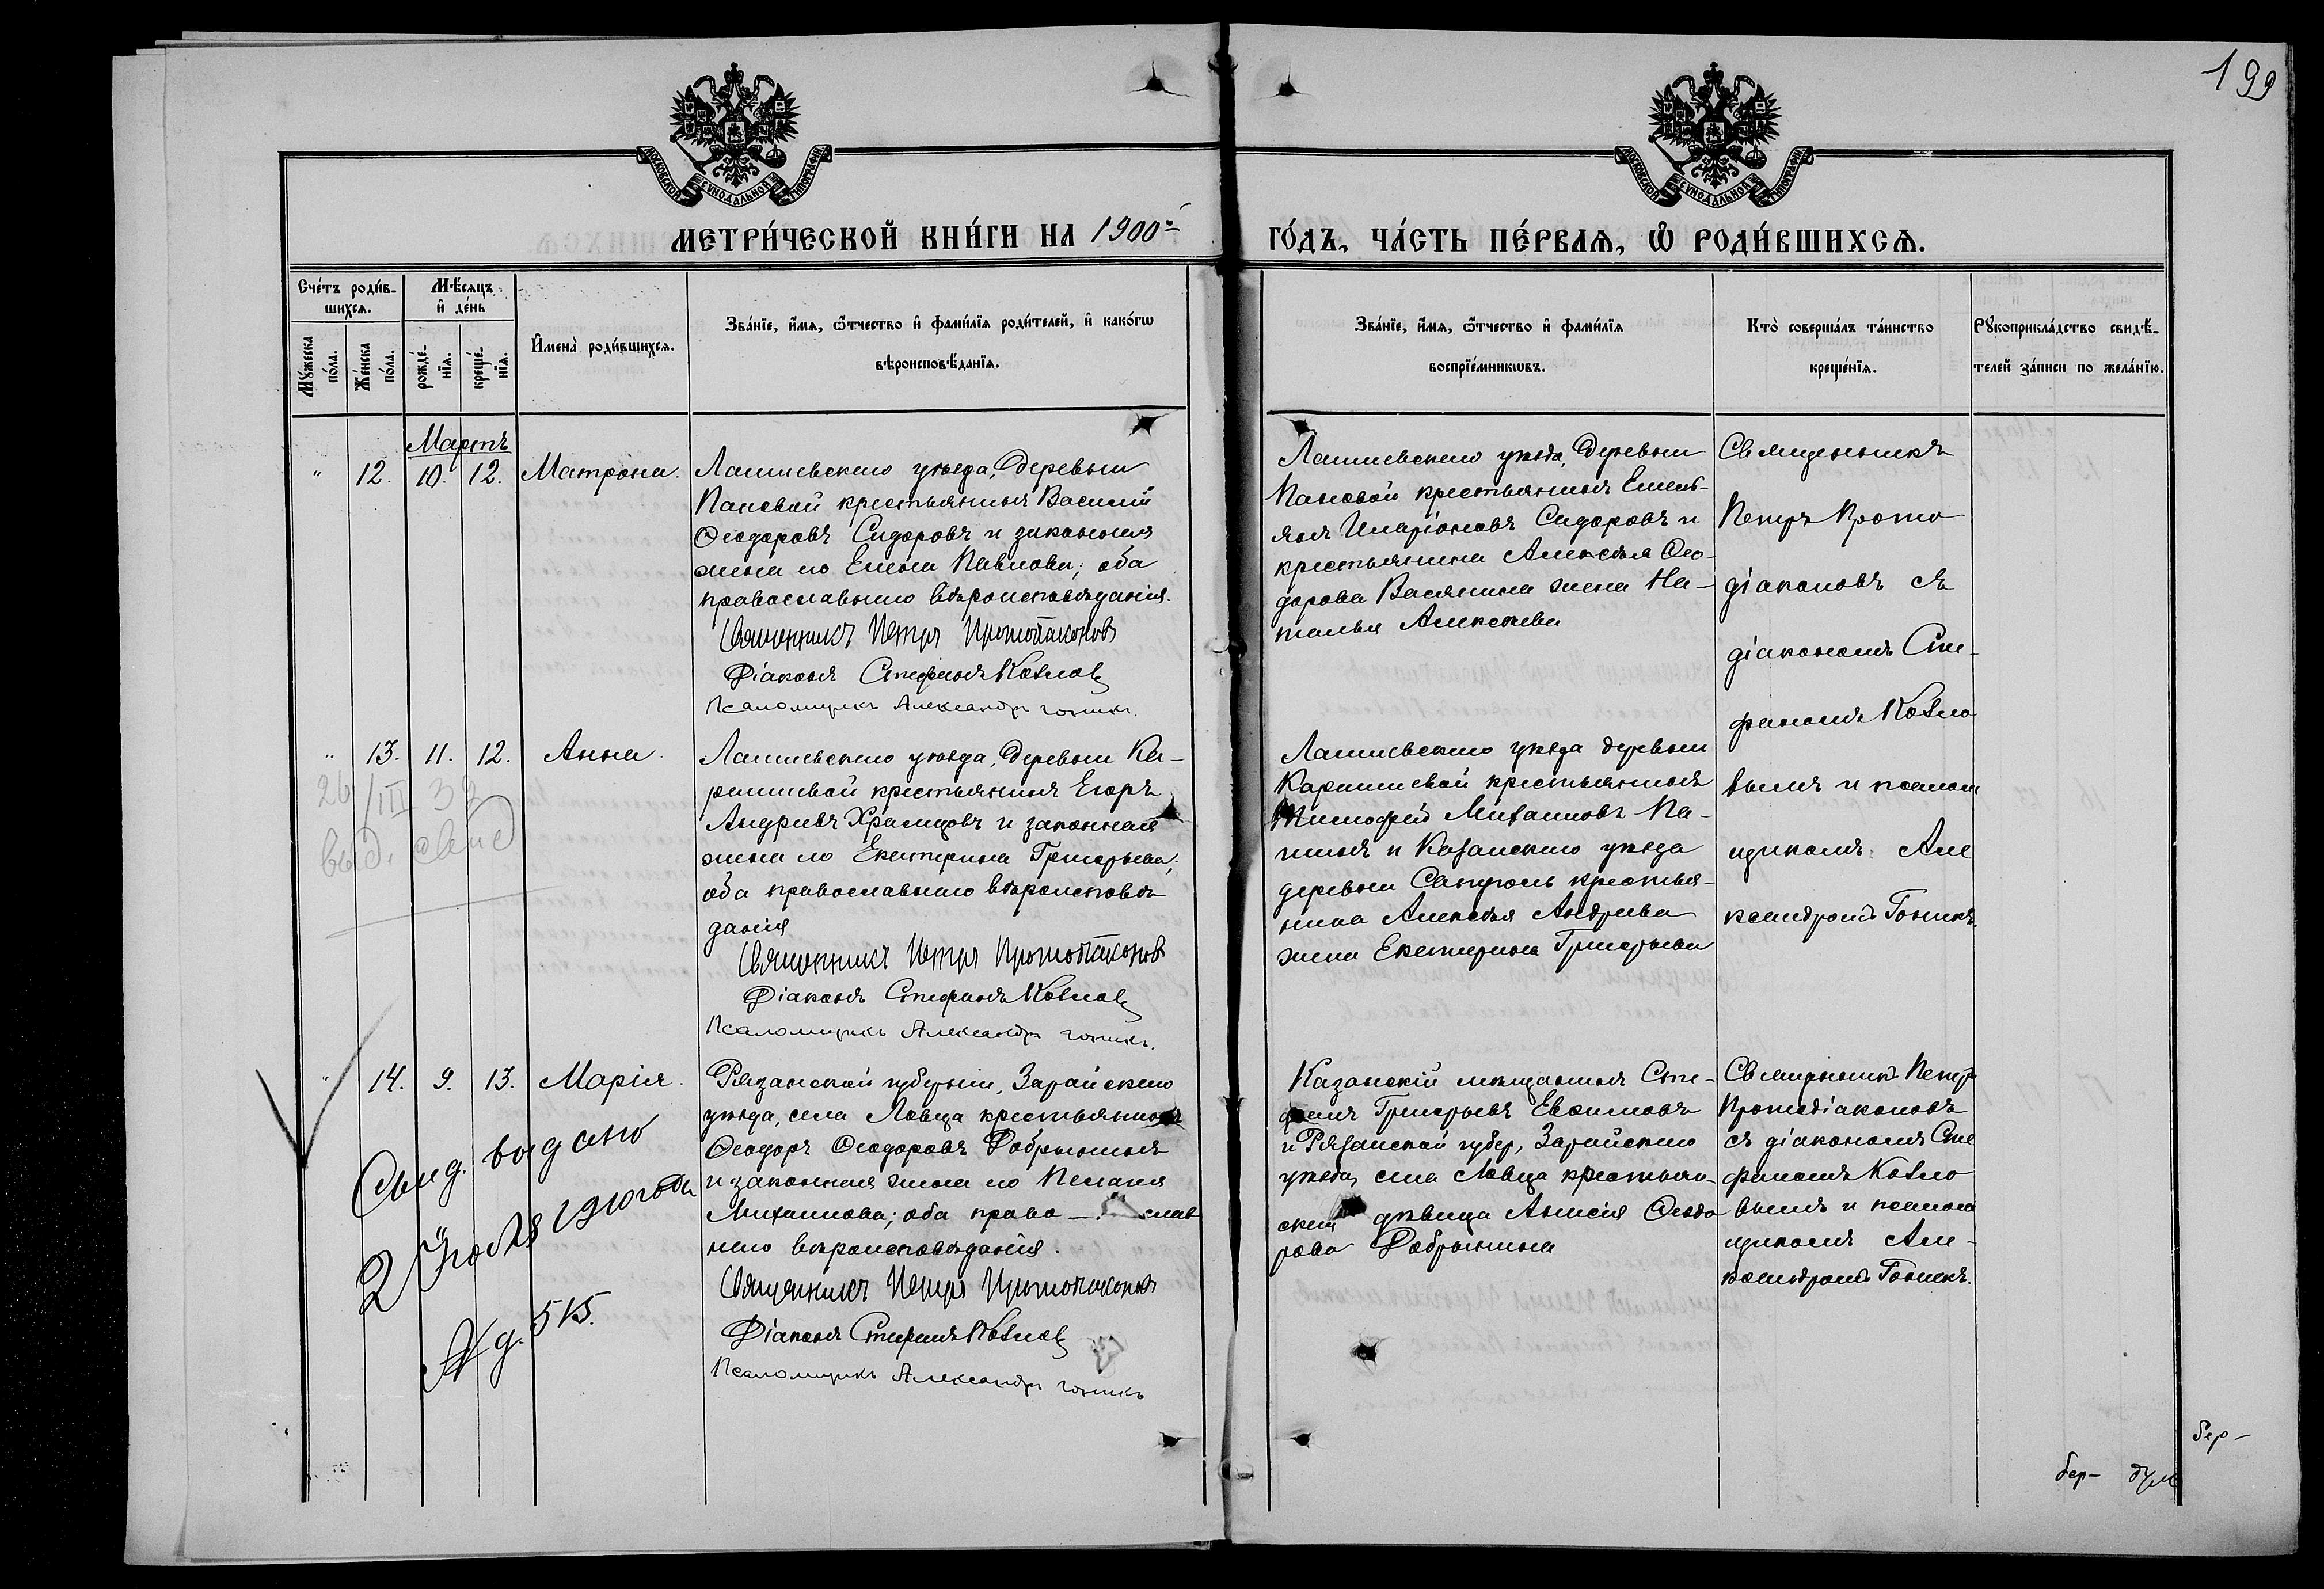 199
МОСКОВСКОЙ СѴНОДАЛЬНОЙ ТИПОГРАФІИ
МОСКОВСКОЙ СѴНОДАЛЬНОЙ ТИПОГРАФІИ
МЕТРИ́ЧЕСКОЙ КНИ́ГИ НА 1900-й
ГО́ДЪ, ЧА́СТЬ ПЕ́РВАѦ, Ѡ РОДИ́ВШИХСѦ.
Сче́тъ роди́в-
шихсѧ.
Му́жеска по́ла.
Же́нска по́ла.
Мѣ́сяцъ
и де́нь
рожде́-
нїѧ.
креще́-
нїѧ.
Имена̀ роди́вшихсѧ.
Зва́нїе, и́мѧ, ѻ҆́тчество и фами́лїѧ роди́телей, и како́гѡ
вѣроисповѣ́данїѧ.
Зва́нїе, и́мѧ, ѻ҆́тчество и фами́лїѧ
воспрїе́мникѡвъ.
Кто̀ соверша́лъ та́инство
креще́нїѧ.
Рꙋкоприкла́дство свидѣ́-
телей за́писи по жела́нїю.
Мартъ
" 12. 10. 12. Матрона.
Лаишевскаго уѣзда, деревни
Пановой крестьянинъ Василій
Ѳеодоровъ Сидоровъ и законная
жена его Елена Павлова; оба
православнаго вѣроисповѣданія.
Священникъ Петръ Протодіаконовъ
Діаконъ Стефанъ Козловъ
Псаломщикъ Александръ Гонинъ.
Лаишевскаго уѣзда, деревни
Пановой крестьянинъ Емель-
янъ Иларіоновъ Сидоровъ и
крестьянина Алексѣя Ѳео-
дорова Васянина жена На-
талья Алексѣева
Священникъ
Петръ Прото
діаконовъ съ
діакономъ Сте-
фаномъ Козло
вымъ и псалом
щикомъ Але
ксандромъ Гонинъ.
" 13. 11. 12. Анна.
26/III 39
выд. свид
Лаишевскаго уѣзда, деревни Ка-
ришевой крестьянинъ Егоръ
Андреевъ Храмцовъ и законная
жена его Екатерина Григорьева;
оба православнаго вѣроисповѣ
данія
Священникъ Петръ Протодіаконовъ
Діаконъ Стефанъ Козловъ
Псаломщикъ Александръ Гонинъ.
Лаишевскаго уѣзда деревни
Каришевой крестьянинъ
Тимофей Михаиловъ Па-
нинъ и Казанскаго уѣзда
деревни крестья-
нина Алексѣя Андреева
жена Екатерина Григорьева
" 14. 9. 13. Марія.
Свид. выдано
2 Іюля 1910 года
№ 515.
Рязанской губерніи, Зарайскаго
уѣзда, села Ловца крестьянинъ
Ѳеодоръ Ѳеодоровъ Добрынинъ
и законная жена его Пелагія
Михаилова; оба право- слав
наго вѣроисповѣданія.
Священникъ Петръ Протодіаконовъ
Діаконъ Стефанъ Козловъ
Псаломщикъ Александръ Гонинъ
Казанскій мѣщанинъ Сте-
фанъ Григорьевъ Евѳимовъ
и Рязанской губер, Зарайскаго
уѣзда, села Ловца крестьян-
ская дѣвица Анисія Ѳеодо
рова Добрынина
Священникъ Петръ
Протодіаконовъ
съ діакономъ Сте
фаномъ Козло
вымъ и псалом
щикомъ Але-
ксандромъ Гонинъ.
бер-
бер-